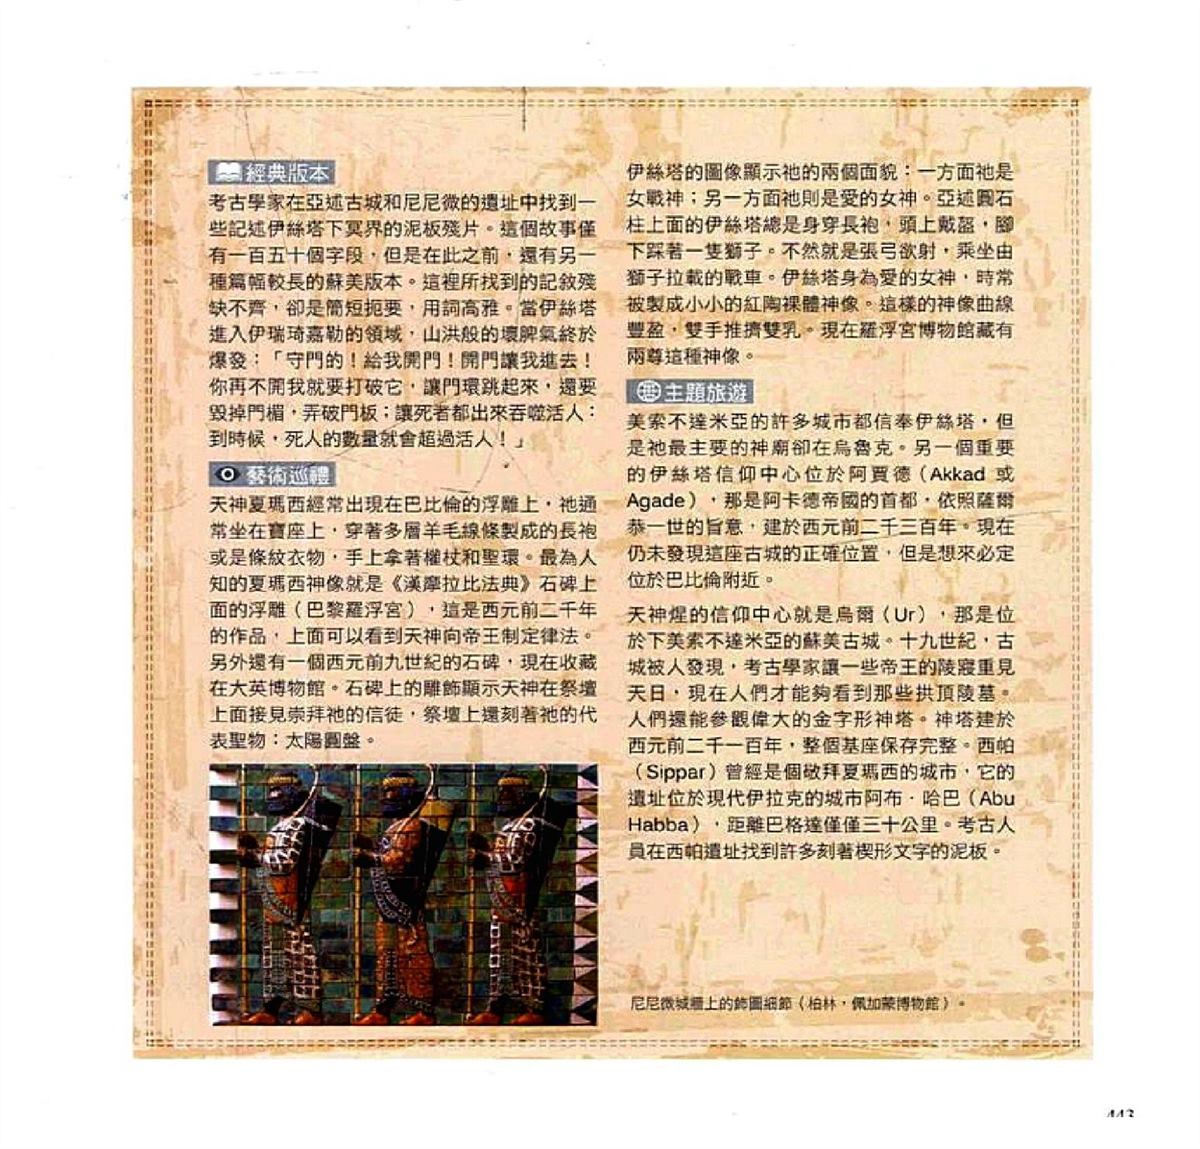 經典版本
考古學家在亞述古城和尼尼微的遺址中找到一
些記述伊絲塔下冥界的泥板殘片。這個故事僅
有一百五十個字段，但是在此之前，還有另一
種篇幅較長的蘇美版本。這裡所找到的記敘殘
缺不齊，卻是簡短扼要，用詞高雅。當伊絲塔
進入伊瑞琦嘉勒的領域，山洪般的壞脾氣終於
爆發：「守門的！給我開門！開門讓我進去！
你再不開我就要打破它，讓門環跳起來，還要
毀掉門楣，弄破門板；讓死者都出來吞噬活人：
到時候，死人的數量就會超過活人！」
藝術巡禮
天神夏瑪西經常出現在巴比倫的浮雕上，祂通
常坐在寶座上，穿著多層羊毛線條製成的長袍
或是條紋衣物，手上拿著權杖和聖環。最為人
知的夏瑪西神像就是《漢摩拉比法典》石碑上
面的浮雕（巴黎羅浮宮），這是西元前二千年
的作品，上面可以看到天神向帝王制定律法。
另外還有一個西元前九世紀的石碑，現在收藏
在大英博物館。石碑上的雕飾顯示天神在祭壇
上面接見崇拜祂的信徒，祭壇上還刻著祂的代
表聖物：太陽圓盤。
伊絲塔的圖像顯示祂的兩個面貌：一方面祂是
女戰神；另一方面祂則是愛的女神。亞述圓石
柱上面的伊絲塔總是身穿長袍，頭上戴盔，腳
下踩著一隻獅子。不然就是張弓欲射，乘坐由
獅子拉載的戰車。伊絲塔身為愛的女神，時常
被製成小小的紅陶裸體神像。這樣的神像曲線
豐盈，雙手推擠雙乳。現在羅浮宮博物館藏有
兩尊這種神像。
主題旅遊
美索不達米亞的許多城市都信奉伊絲塔，但
是祂最主要的神廟卻在烏魯克。另一個重要
的伊絲塔信仰中心位於阿賈德（Akkad 或
Agade），那是阿卡德帝國的首都，依照薩爾
恭一世的旨意，建於西元前二千三百年。現在
仍未發現這座古城的正確位置，但是想來必定
位於巴比倫附近。
天神煋的信仰中心就是烏爾（Ur），那是位
於下美索不達米亞的蘇美古城。十九世紀，古
城被人發現，考古學家讓一些帝王的陵寢重見
天日，現在人們才能夠看到那些拱頂陵墓。
人們還能參觀偉大的金字形神塔。神塔建於
西元前二千一百年，整個基座保存完整。西帕
（Sippar）曾經是個敬拜夏瑪西的城市，它的
遺址位於現代伊拉克的城市阿布．哈巴（Abu
Habba），距離巴格達僅僅三十公里。考古人
員在西帕遺址找到許多刻著楔形文字的泥板。
尼尼微城牆上的飾圖細節（柏林，佩加蒙博物館）。
443